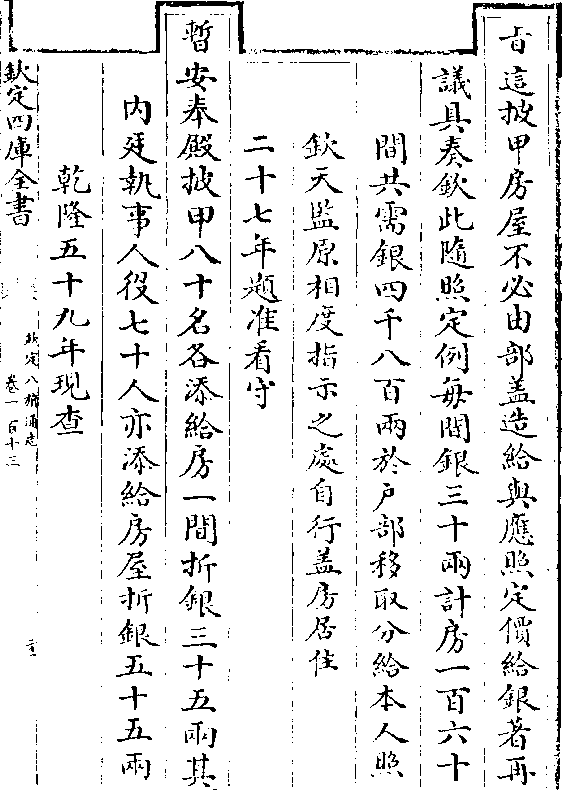 旨這披甲房屋不必由部盖造給與應照定價給銀著再
議具奏欽此隨照定例每間銀三十兩計房一百六十
間共需銀四千八百兩於戶部移取分給本人照
欽天監原相度指示之處自行盖房居住
二十七年題准看守
暫安奉殿披甲八十名各添給房一間折銀三十五兩其
内廷執事人役七十人亦添給房屋折銀五十五兩
乾隆五十九年現查
欽定四庫全書
欽定八旗通志
卷一百十三